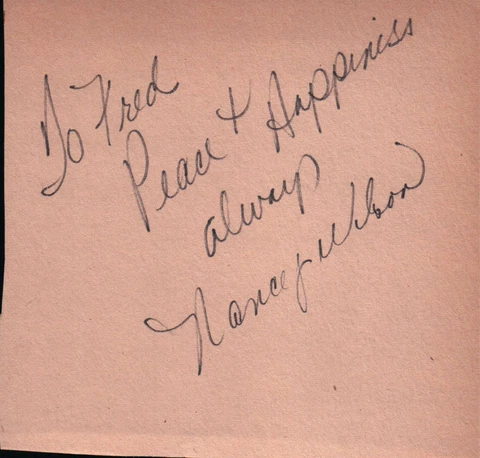 To Fred
Peace + Happiness
always
Nancy Wilson